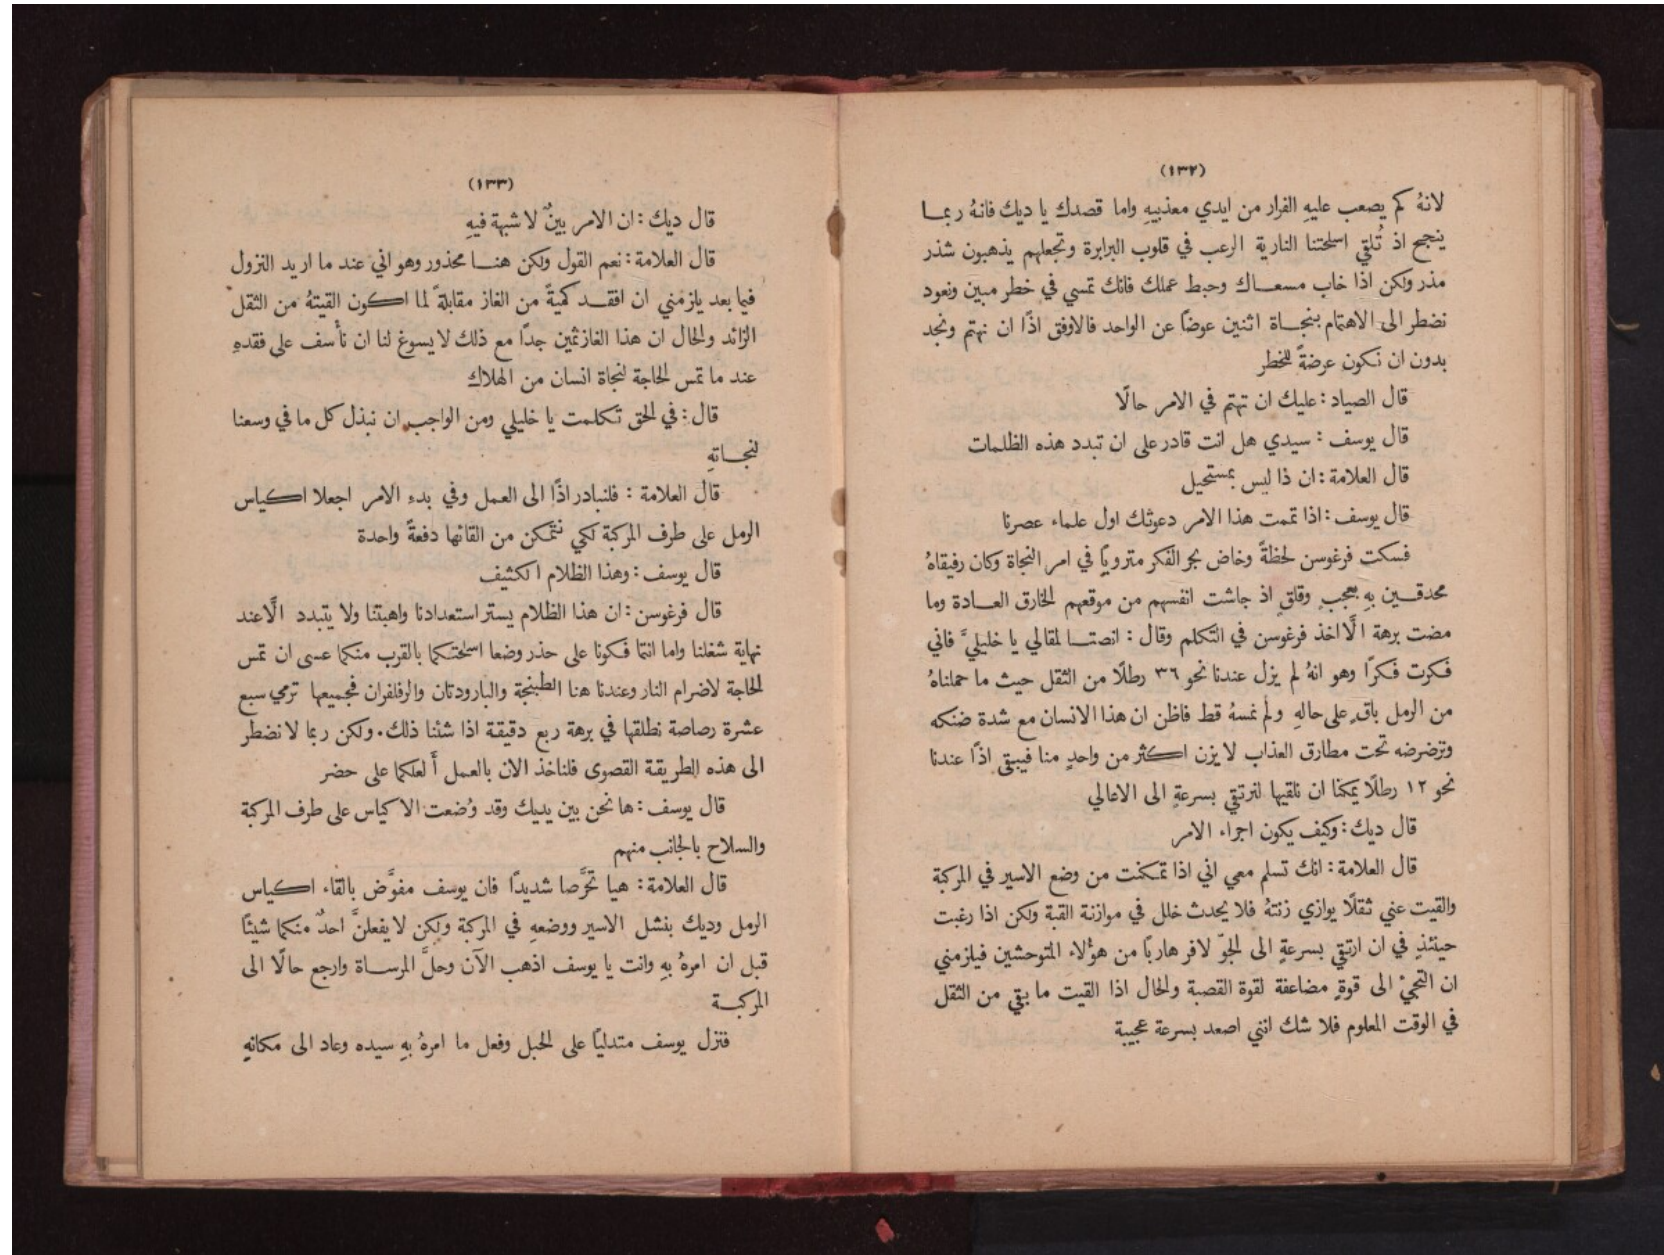 (١٣٢)
لانهُ كم يصعب عليهِ الفرار من ايدي معذبيهِ واما قصدك يا ديك فانهُ ربما
ينجح اذ تُلقي اسلحتنا النارية الرعب في قلوب البرابرة وتجعلهم يذهبون شذر
مذر ولكن اذا خاب مسعاك وحبط عملك فانك تمسي في خطر مبين ونعود
نضطر الى الاهتمام بنجاة اثنين عوضاً عن الواحد فالاوفق اذًا ان نهتم ونجد
بدون ان نكون عرضةً للخطر
قال الصياد : عليك ان تهتم في الامر حالًا
قال يوسف : سيدي هل انت قادر على ان تبدد هذه الظلمات
قال العلامة : ان ذا ليس بمستحيل
قال يوسف : اذا تممت هذا الامر دعوتك اول علماء عصرنا
فسكت فرغوسن لحظةً وخاض بحر الفكر مترويًا في امر النجاة وكان رفيقاهُ
محدقين بهِ بعجبٍ وقلقٍ اذ جاشت انفسهم من موقعهم الخارق العادة وما
مضت برهة الَّا اخذ فرغوسن في التكلم وقال : انصتا لمقالي يا خليليَّ فاني
فكرت فكرًا وهو انهُ لم يزل عندنا نحو ٣٦ رطلًا من الثقل حيث ما حملناهُ
من الرمل باقٍ على حالهِ ولم نمسهُ قط فاظن ان هذا الانسان مع شدة ضنكه
وترضرضه تحت مطارق العذاب لا يزن اكثر من واحدٍ منا فيبقى اذًا عندنا
نحو ١٢ رطلًا يمكنا ان نلقيها لنرتقي بسرعةٍ الى الاعالي
قال ديك : وكيف يكون اجراء الامر
قال العلامة : انك تسلم معي اني اذا تمكنت من وضع الاسير في المركبة
والقيت عني ثقلًا يوازي زنتهُ فلا يحدث خلل في موازنة القبة ولكن اذا رغبت
حينئذٍ في ان ارتقي بسرعةٍ الى الجوّ لافر هاربًا من هؤلاء المتوحشين فيلزمني
ان التجئ الى قوةٍ مضاعفة لقوة القصبة والحال اذا القيت ما بقي من الثقل
في الوقت المعلوم فلا شك انني اصعد بسرعة عجيبة
(١٣٣)
قال ديك : ان الامر بينٌ لا شبهة فيهِ
قال العلامة : نعم القول ولكن هنا محذور وهو اني عند ما اريد النزول
فيما بعد يلزمني ان افقد كميةً من الغاز مقابلةً لما اكون القيتهُ من الثقل
الزائد والحال ان هذا الغاز ثمين جدًا مع ذلك لا يسوغ لنا ان نأسف على فقدهِ
عند ما تمس الحاجة لنجاة انسان من الهلاك
قال : في الحق تكلمت يا خليلي ومن الواجب ان نبذل كل ما في وسعنا
لنجاتهِ
قال العلامة : فلنبادر اذًا الى العمل وفي بدء الامر اجعلا اكياس
الرمل على طرف المركبة لكي نتمكن من القائها دفعةً واحدة
قال يوسف : وهذا الظلام الكثيف
قال فرغوسن : ان هذا الظلام يستر استعدادنا واهبتنا ولا يتبدد الَّا عند
نهاية شغلنا واما انتما فكونا على حذر وضعا اسلحتكما بالقرب منكما عسى ان تمس
الحاجة لاضرام النار وعندنا هنا الطبنجة والبارودتان والرفلفران فجميعها ترمي سبع
عشرة رصاصة نطلقها في برهة ربع دقيقة اذا شئنا ذلك . ولكن ربما لا نضطر
الى هذه الطريقة القصوى فلناخذ الان بالعمل أ لعلكما على حضر
قال يوسف : ها نحن بين يديك وقد وُضعت الاكياس على طرف المركبة
والسلاح بالجانب منهم
قال العلامة : هيا تحرَّصا شديدًا فان يوسف مفوَّض بالقاء اكياس
الرمل وديك بنشل الاسير ووضعهِ في المركبة ولكن لا يفعلنَّ احدٌ منكما شيئًا
قبل ان امرهُ بهِ وانت يا يوسف اذهب الآن وحلَّ المرساة وارجع حالًا الى
المركبة
فنزل يوسف متدليًا على الحبل وفعل ما امرهُ بهِ سيده وعاد الى مكانهِ